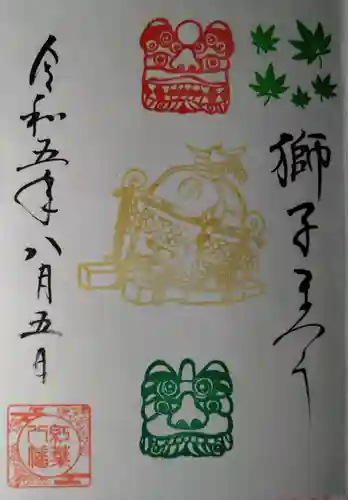 獅子まつり
令和五年八月五日